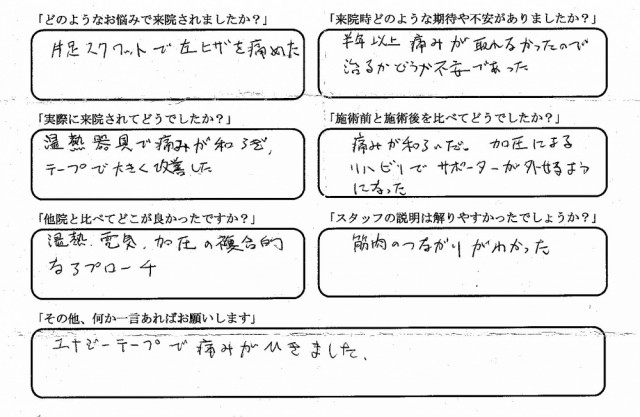 「どのようなお悩みで来院されましたか？」
片足スクワットで左ヒザを痛めた
「来院時どのような期待や不安がありましたか？」
半年以上痛みが取れなかったので
治るかどうか不安であった
「実際に来院されてどうでしたか？」
温熱器具で痛みが和らぎ、
テープで大きく改善した
「施術前と施術後を比べてどうでしたか？」
痛みが和らいだ。加圧による
リハビリでサポーターが外せるよう
になった
「他院と比べてどこが良かったですか？」
温熱、電気、加圧の複合的
なアプローチ
「スタッフの説明は解りやすかったでしょうか？」
筋肉のつながりがわかった
「その他、何か一言あればお願いします」
エナジーテープで痛みがひきました。